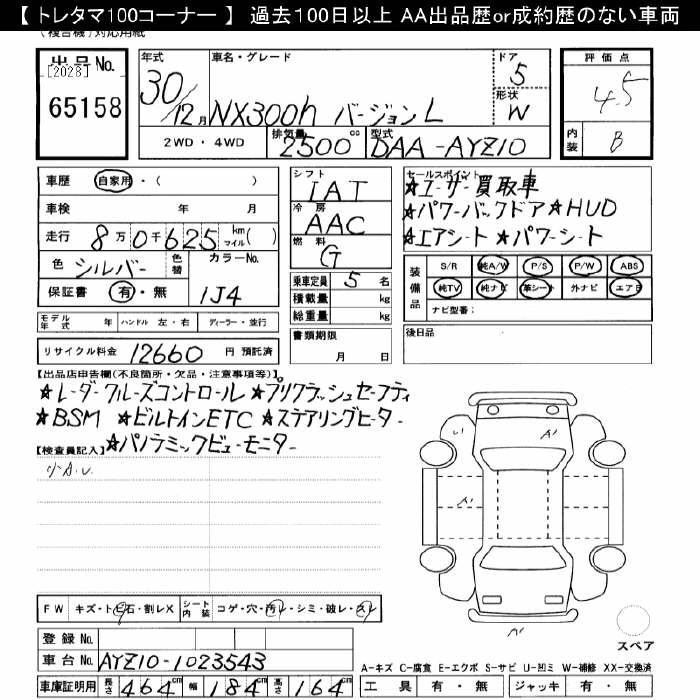 【 トレタマ100コーナー 】 過去100日以上 AA出品歴or成約歴のない車両
(複合機)対応用紙
出品No.
[2028]
65158
年式 30/12月
車名・グレード
NX300h バージョンL
ドア 5
形状 W
評価点 4.5
内装 B
2WD・4WD
排気量 2500 cc
型式 DAA-AYZ10
車歴 自家用・( )
車検 年 月
走行 8万0千625 km マイル( )
色 シルバー 色替
カラーNo. 1J4
保証書 有・無
シフト IAT
冷房 AAC
燃料 G
乗車定員 5名
積載量 kg
総重量 kg
書類期限 月 日
セールスポイント
★ユーザー買取車
★パワーバックドア★HUD
★エアシート ★パワーシート
装備品
S/R 純A/W P/S P/W ABS
純TV 純ナビ 革シート 外ナビ エアB
ナビ型番:
後日品
モデル年式 年 ハンドル 左・右 ディーラー・並行
リサイクル料金 12660 円 預託済
【出品店申告欄(不良箇所・欠品・注意事項等)】
★レーダークルーズコントロール ★プリクラッシュセーフティ
★BSM ★ビルトインETC ★ステアリングヒーター
★パノラミックビューモニター
【検査員記入】
小A.U.
FW キズ・トビ石・割レX
シート内装 コゲ・穴・汚レ・シミ・破レ・スレ
登録No.
車台No. AYZ10-1023543
車庫証明用 長さ 464cm 幅 184cm 高さ 164cm
スペア
A-キズ C-腐食 E-エクボ S-サビ U-凹ミ W-補修 XX-交換済
工具 有・無 ジャッキ 有・無